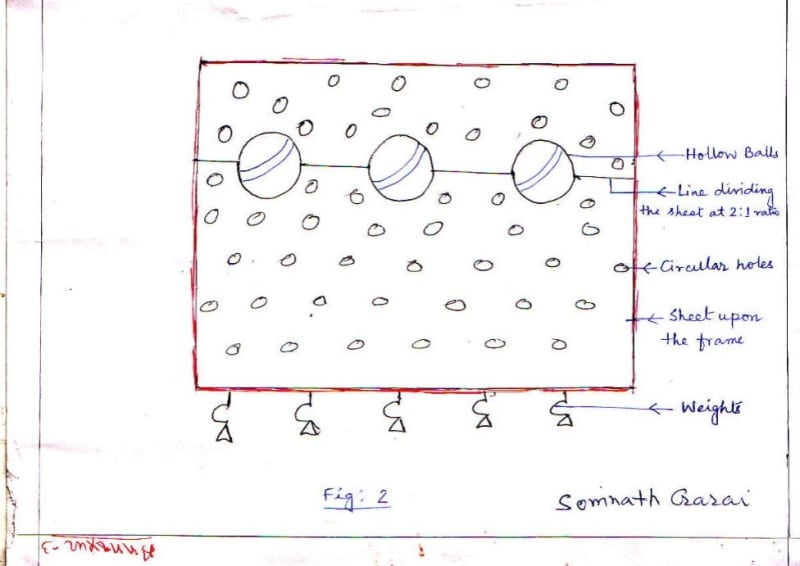 Hollow Balls
Line dividing
the sheet at 2:1 ratio
Circular holes
Sheet upon
the frame
Weights
Fig: 2
Somnath
Annexure-3